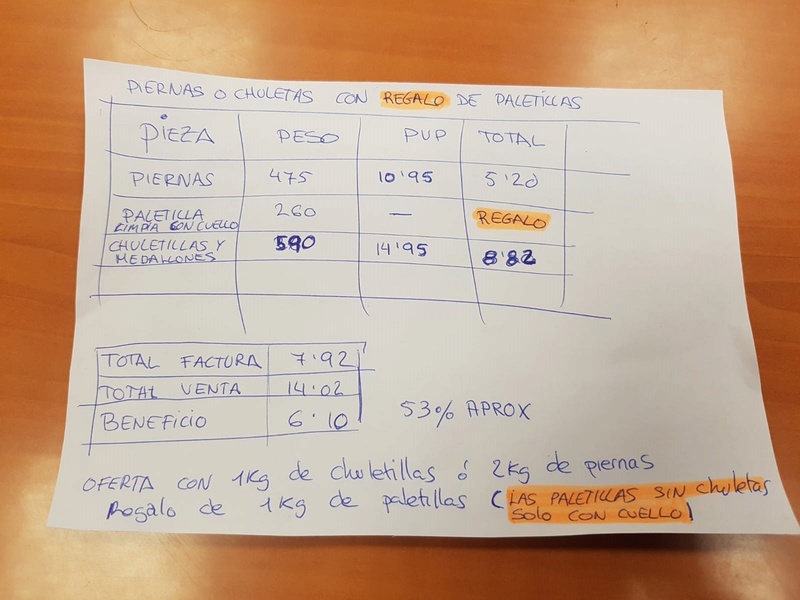 PIERNAS O CHULETAS CON REGALO DE PALETILLAS
PIEZA PESO PVP TOTAL
PIERNAS 475 10'95 5'20
PALETILLA LIMPIA CON CUELLO 260 — REGALO
CHULETILLAS Y MEDALLONES 590 14'95 8'82
TOTAL FACTURA 7'92
TOTAL VENTA 14'02
BENEFICIO 6'10
53% APROX
OFERTA CON 1Kg de chuletillas ó 2Kg de piernas
Regalo de 1Kg de paletillas (LAS PALETILLAS SIN chuletas
SOLO CON CUELLO)